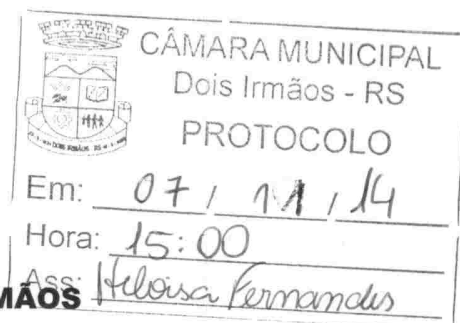 CÂMARA MUNICIPAL
Dois Irmãos - RS
PROTOCOLO
Em: 07 / 11 / 14
Hora: 15:00
Ass: Heloisa Fernandes
MÃOS